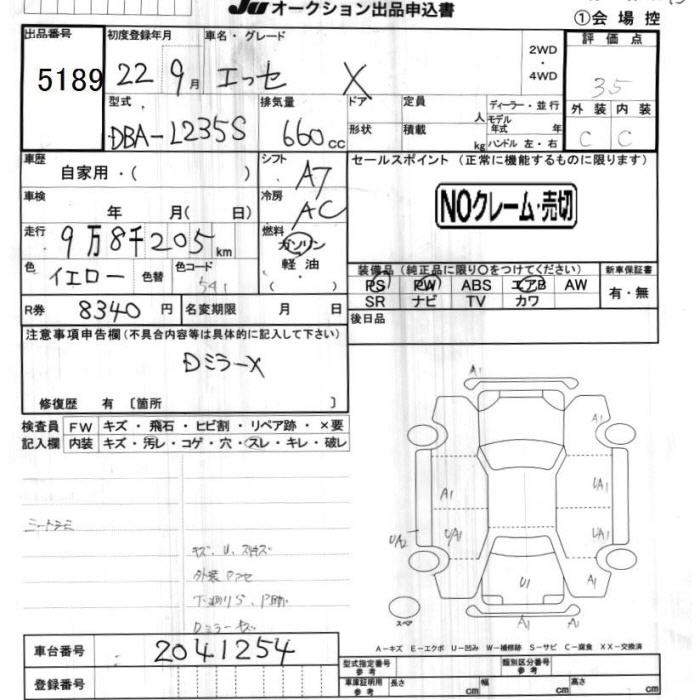 JU オークション出品申込書
①会場控
出品番号 初度登録年月 車名・グレード 評価点
5189 22 9月 エッセ X 2WD・4WD 35
型式 排気量 ドア 定員 人 ディーラー・並行 外装 内装
DBA-L235S 660cc 形状 積載 kg モデル年式 年 ハンドル 左・右 C C
車歴 自家用・( ) シフト AT セールスポイント (正常に機能するものに限ります)
車検 年 月(日) 冷房 AC NOクレーム・売切
走行 9万8千205km 燃料 ガソリン
軽油
( )
色 イエロー 色替 色コード 541 装備品 (純正品に限り○をつけてください) 新車保証書
PS PW ABS エアB AW 有・無
SR ナビ TV カワ
R券 8340円 名変期限 月 日 後日品
注意事項申告欄(不具合内容等は具体的に記入して下さい)
DミラーX
修復歴 有 〔箇所 〕
検査員 FW キズ・飛石・ヒビ割・リペア跡・×要
記入欄 内装 キズ・汚レ・コゲ・穴・スレ・キレ・破レ
A1
A1
A1 UA1
UA2 U/A1 UA1
U1 A1
A1 A1
シートシミ
キズ、U、スキズ
Dミラーキズ
スペア
A-キズ E-エクボ U-凹み W-補修跡 S-サビ C-腐食 XX-交換済
車台番号 2041254
登録番号
型式指定番号 参考 類別区分番号 参考
車庫証明用 参考 長さ cm 幅 cm 高さ cm